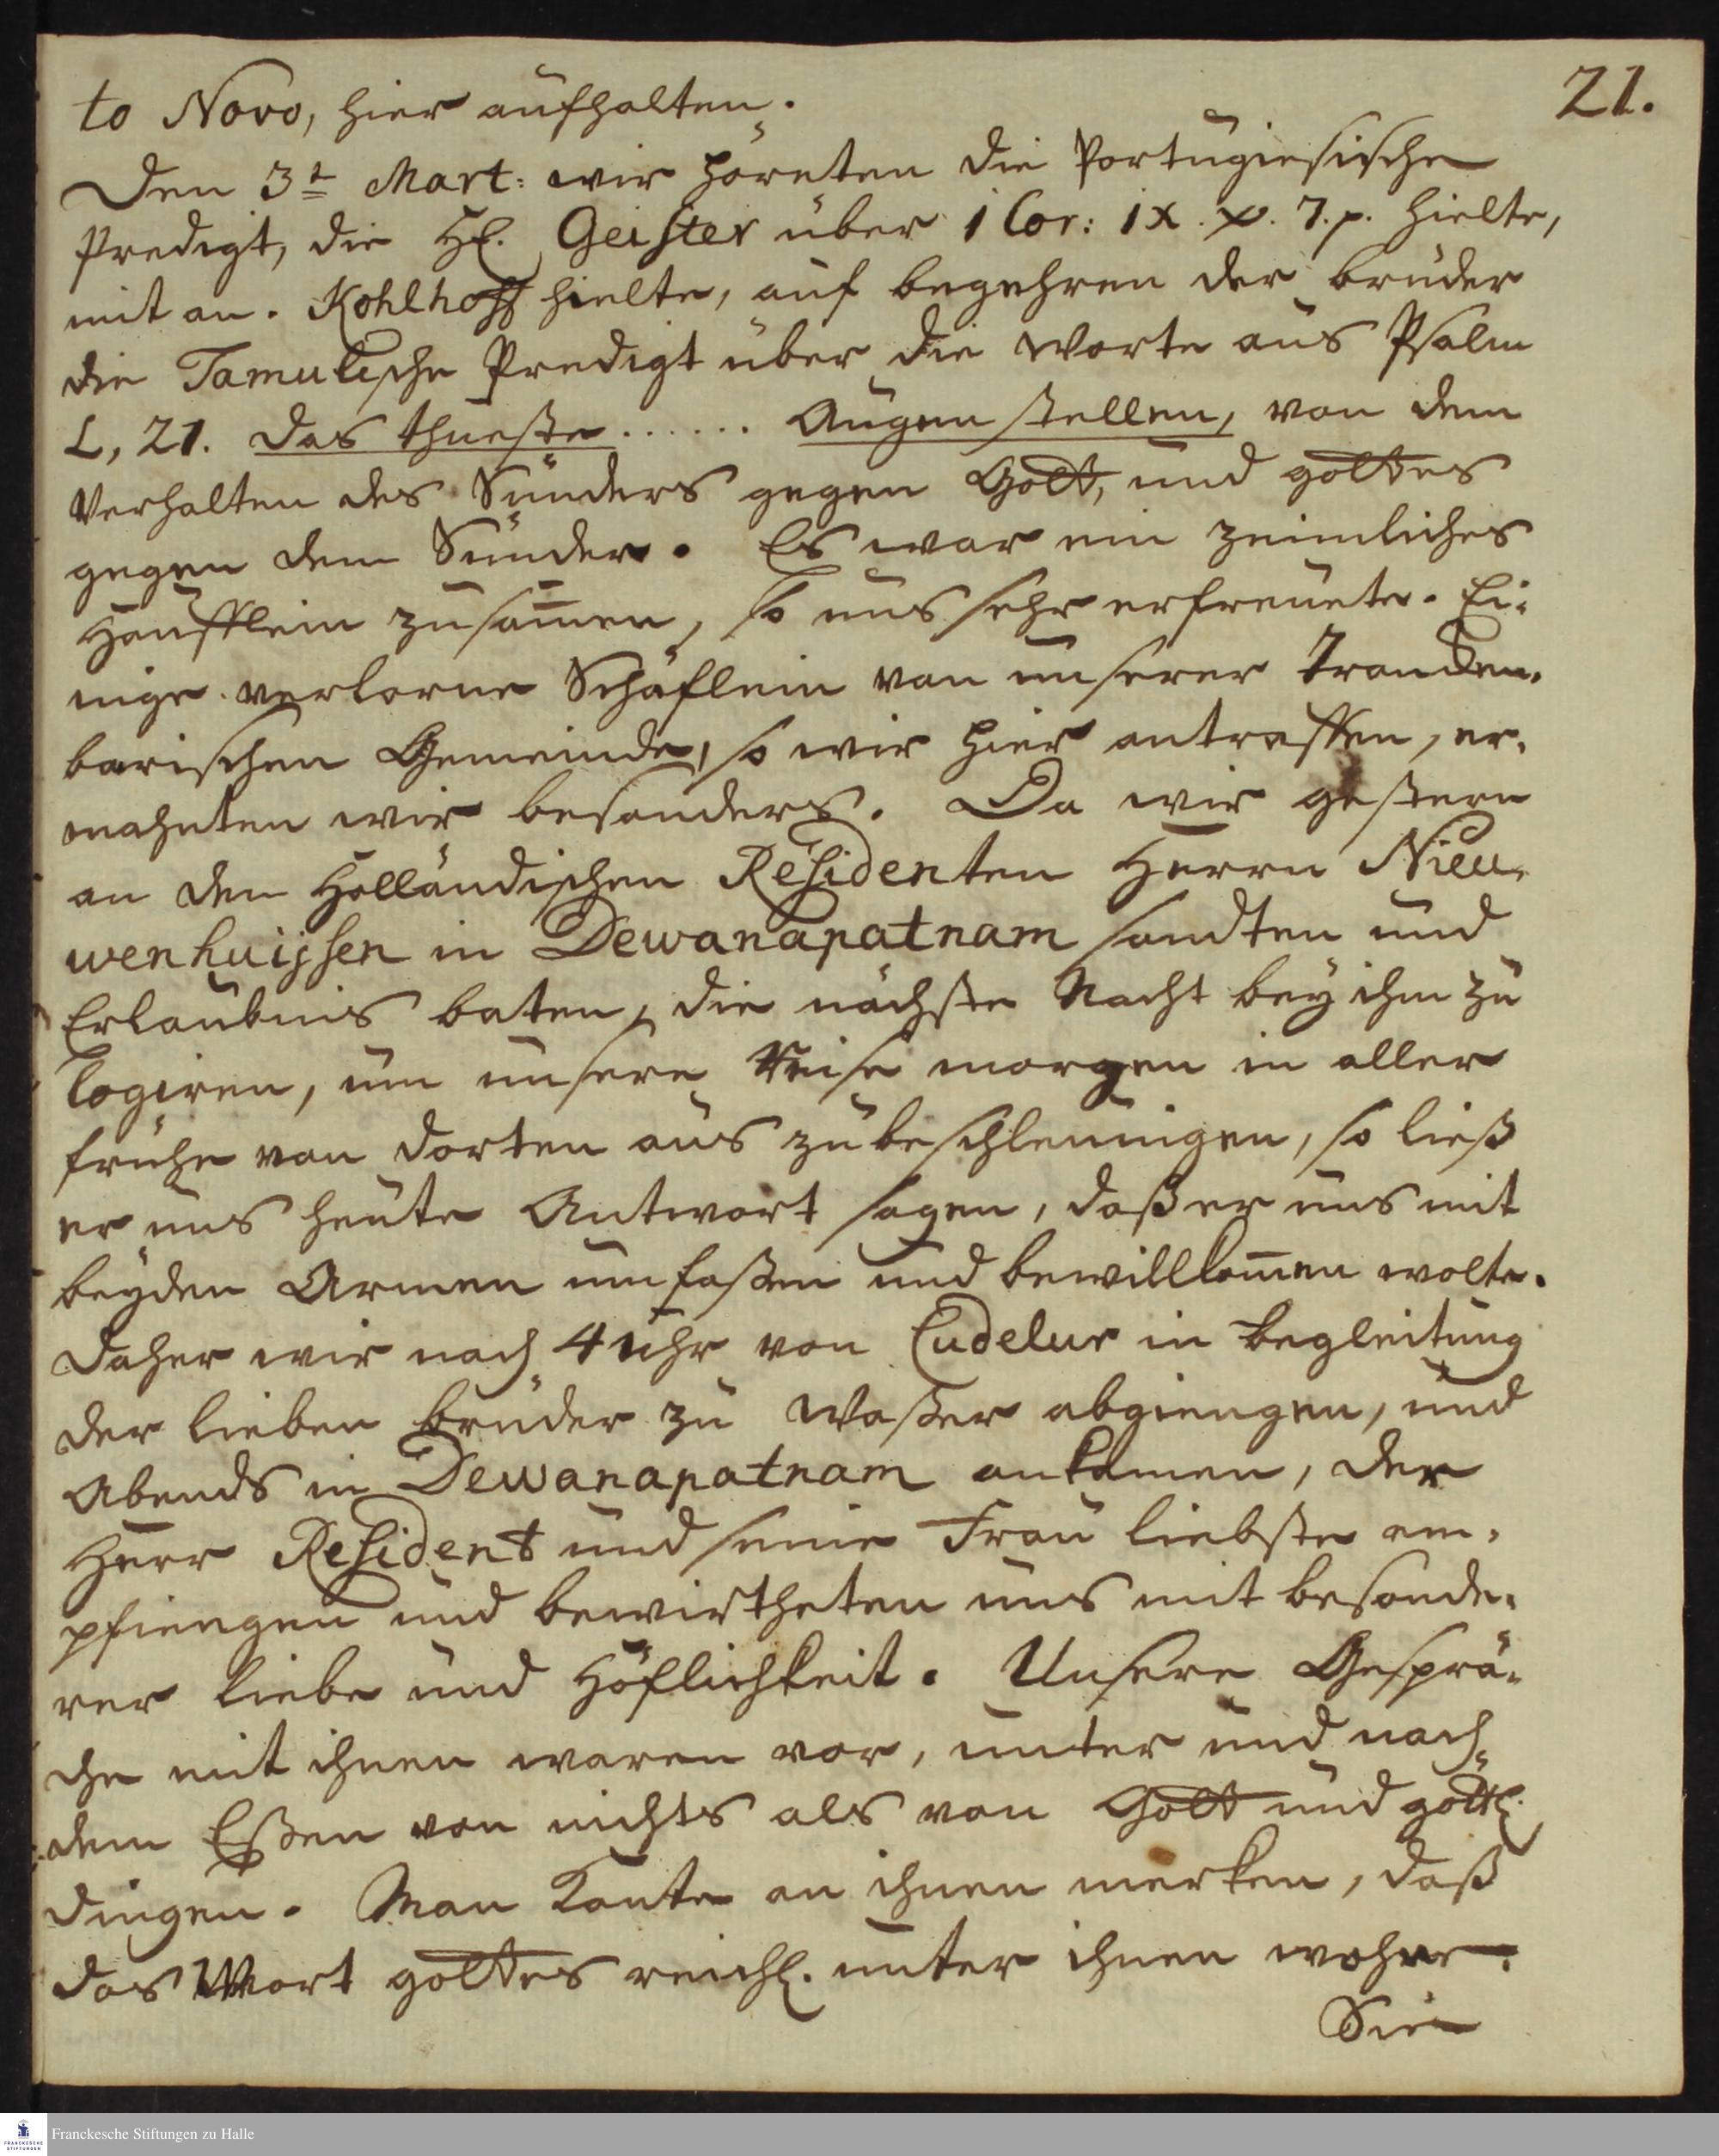 21.
to Novo, hier aufhalten.
Den 3t Mart: wir höreten die Portugiesische
Predigt, die H. Geister über 1 Cor: IX. v. 7. p. hielte,
mit an. Kohlhoff hielte, auf begehren der brüder
die Tamulische Predigt über die Worte aus Psalm
L, 21. Das thueste ...... Augen stellen, von dem
Verhalten des Sünders gegen Gott, und gottes
gegen dem Sünder. Es war ein zeimliches
Häufflein zusam̅en, so uns sehr erfreuete. Ei-
nige verlorne Schäflein von unserer Tranden-
barischen Gemeinde, so wir hier antraffen, er-
mahnten wir besonders. Da wir gestern
an den Holländischen Residenten Herrn Nieu-
wenhuijsen in Dewanapatnam sandten und
Erlaubnis baten, die nächste Nacht bey ihm zu
logiren, um unsere Reise morgen in aller
frühe von dorten aus zu beschleunigen, so ließ
er uns heute Antwort sagen, daß er uns mit
beyden Armen umfaßen und bewillkom̅en wolte.
Daher wir nach 4 Uhr von Cudelur in begleitung
der lieben brüder zu Waßer abgiengen, und
Abends in Dewanapatnam ankamen, der
Herr Resident und seine Frau liebste em-
pfiengen und bewirtheten uns mit besonde-
rer Liebe und Höflichkeit. Unsere Gesprä-
che mit ihnen waren vor, unter und nach
dem Eßen von nichts als von Gott und göttl.
Dingen. Man konte an ihnen merken, daß
das Wort gottes reichl. unter ihnen wohne.
Sie
Franckesche Stiftungen zu Halle
FRANCKESCHE
STIFTUNGEN